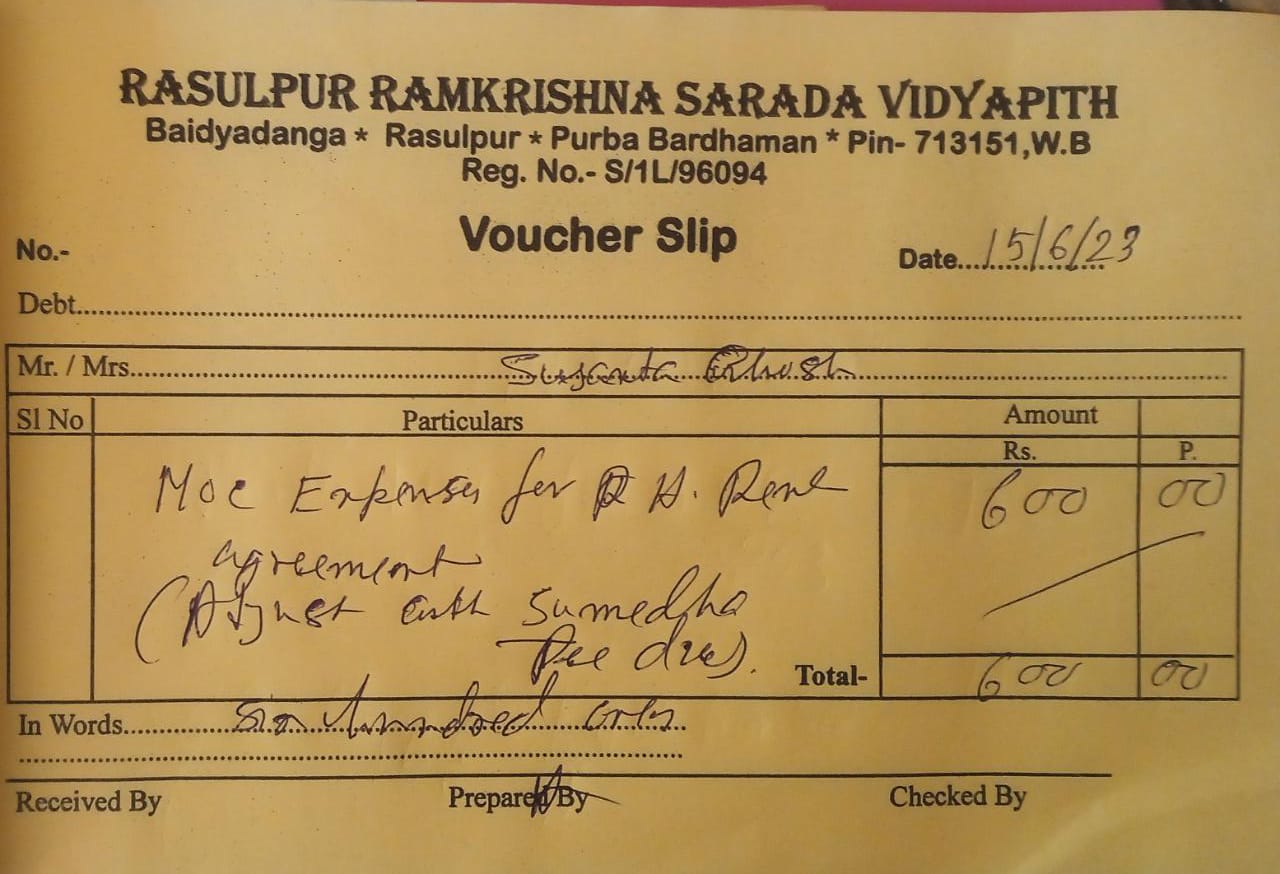 RASULPUR RAMKRISHNA SARADA VIDYAPITH
Baidyadanga * Rasulpur * Purba Bardhaman * Pin- 713151,W.B
Reg. No.- S/1L/96094
Voucher Slip
No.-
Date....15/6/23
Debt
Mr. / Mrs. Susanta Ghosh
Sl No Particulars Amount
Rs. P.
Expenses for H. Rent 600 00
agreement
(Adjust with Sumedha
Fee dues).
Total- 600 00
In Words Six hundred only
Received By Prepared By Checked By